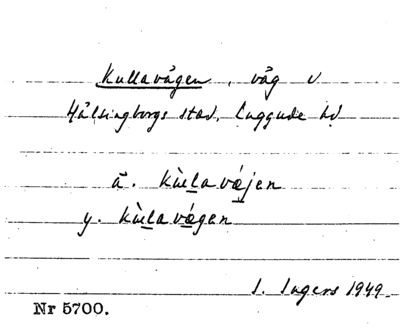 Kullavägen, väg v
Hälsingborgs stad, Luggude hd
ä. kùlavǽjen
y. kùlavǽgen
I. Ingers 1949.
Nr 5700.